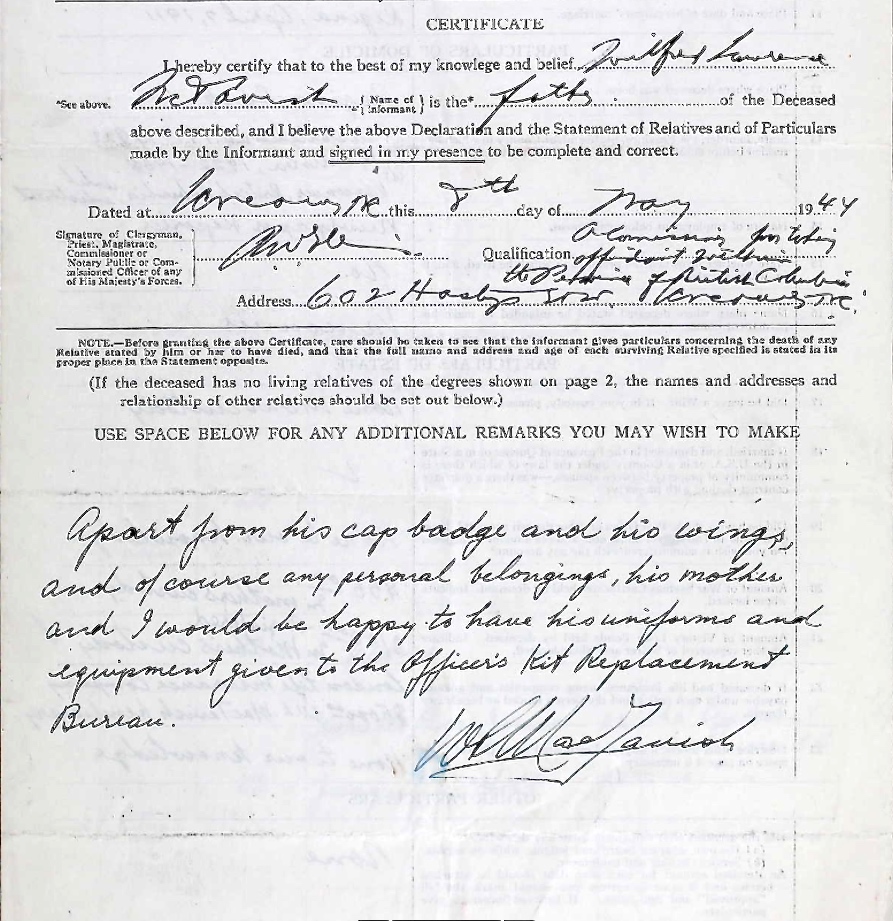 CERTIFICATE
I hereby certify that to the best of my knowlege and belief Wilfred Lawrence
*See above. McTavish { Name of Informant } is the* father of the Deceased
above described, and I believe the above Declaration and the Statement of Relatives and of Particulars
made by the Informant and signed in my presence to be complete and correct.
Dated at Vancouver BC this 8th day of May 1944
Signature of Clergyman,
Priest, Magistrate,
Commissioner or
Notary Public or Com-
missioned Officer of any
of His Majesty's Forces.
Qualification A Commissioner for taking
affidavits within
the Province of British Columbia
Address 602 Hastings St W. Vancouver BC.
NOTE.—Before granting the above Certificate, care should be taken to see that the informant gives particulars concerning the death of any
Relative stated by him or her to have died, and that the full name and address and age of each surviving Relative specified is stated in its
proper place in the Statement opposite.
(If the deceased has no living relatives of the degrees shown on page 2, the names and addresses and
relationship of other relatives should be set out below.)
USE SPACE BELOW FOR ANY ADDITIONAL REMARKS YOU MAY WISH TO MAKE
Apart from his cap badge and his wings,
and of course any personal belongings, his mother
and I would be happy to have his uniforms and
equipment given to the Officer's Kit Replacement
Bureau.
WL MacTavish